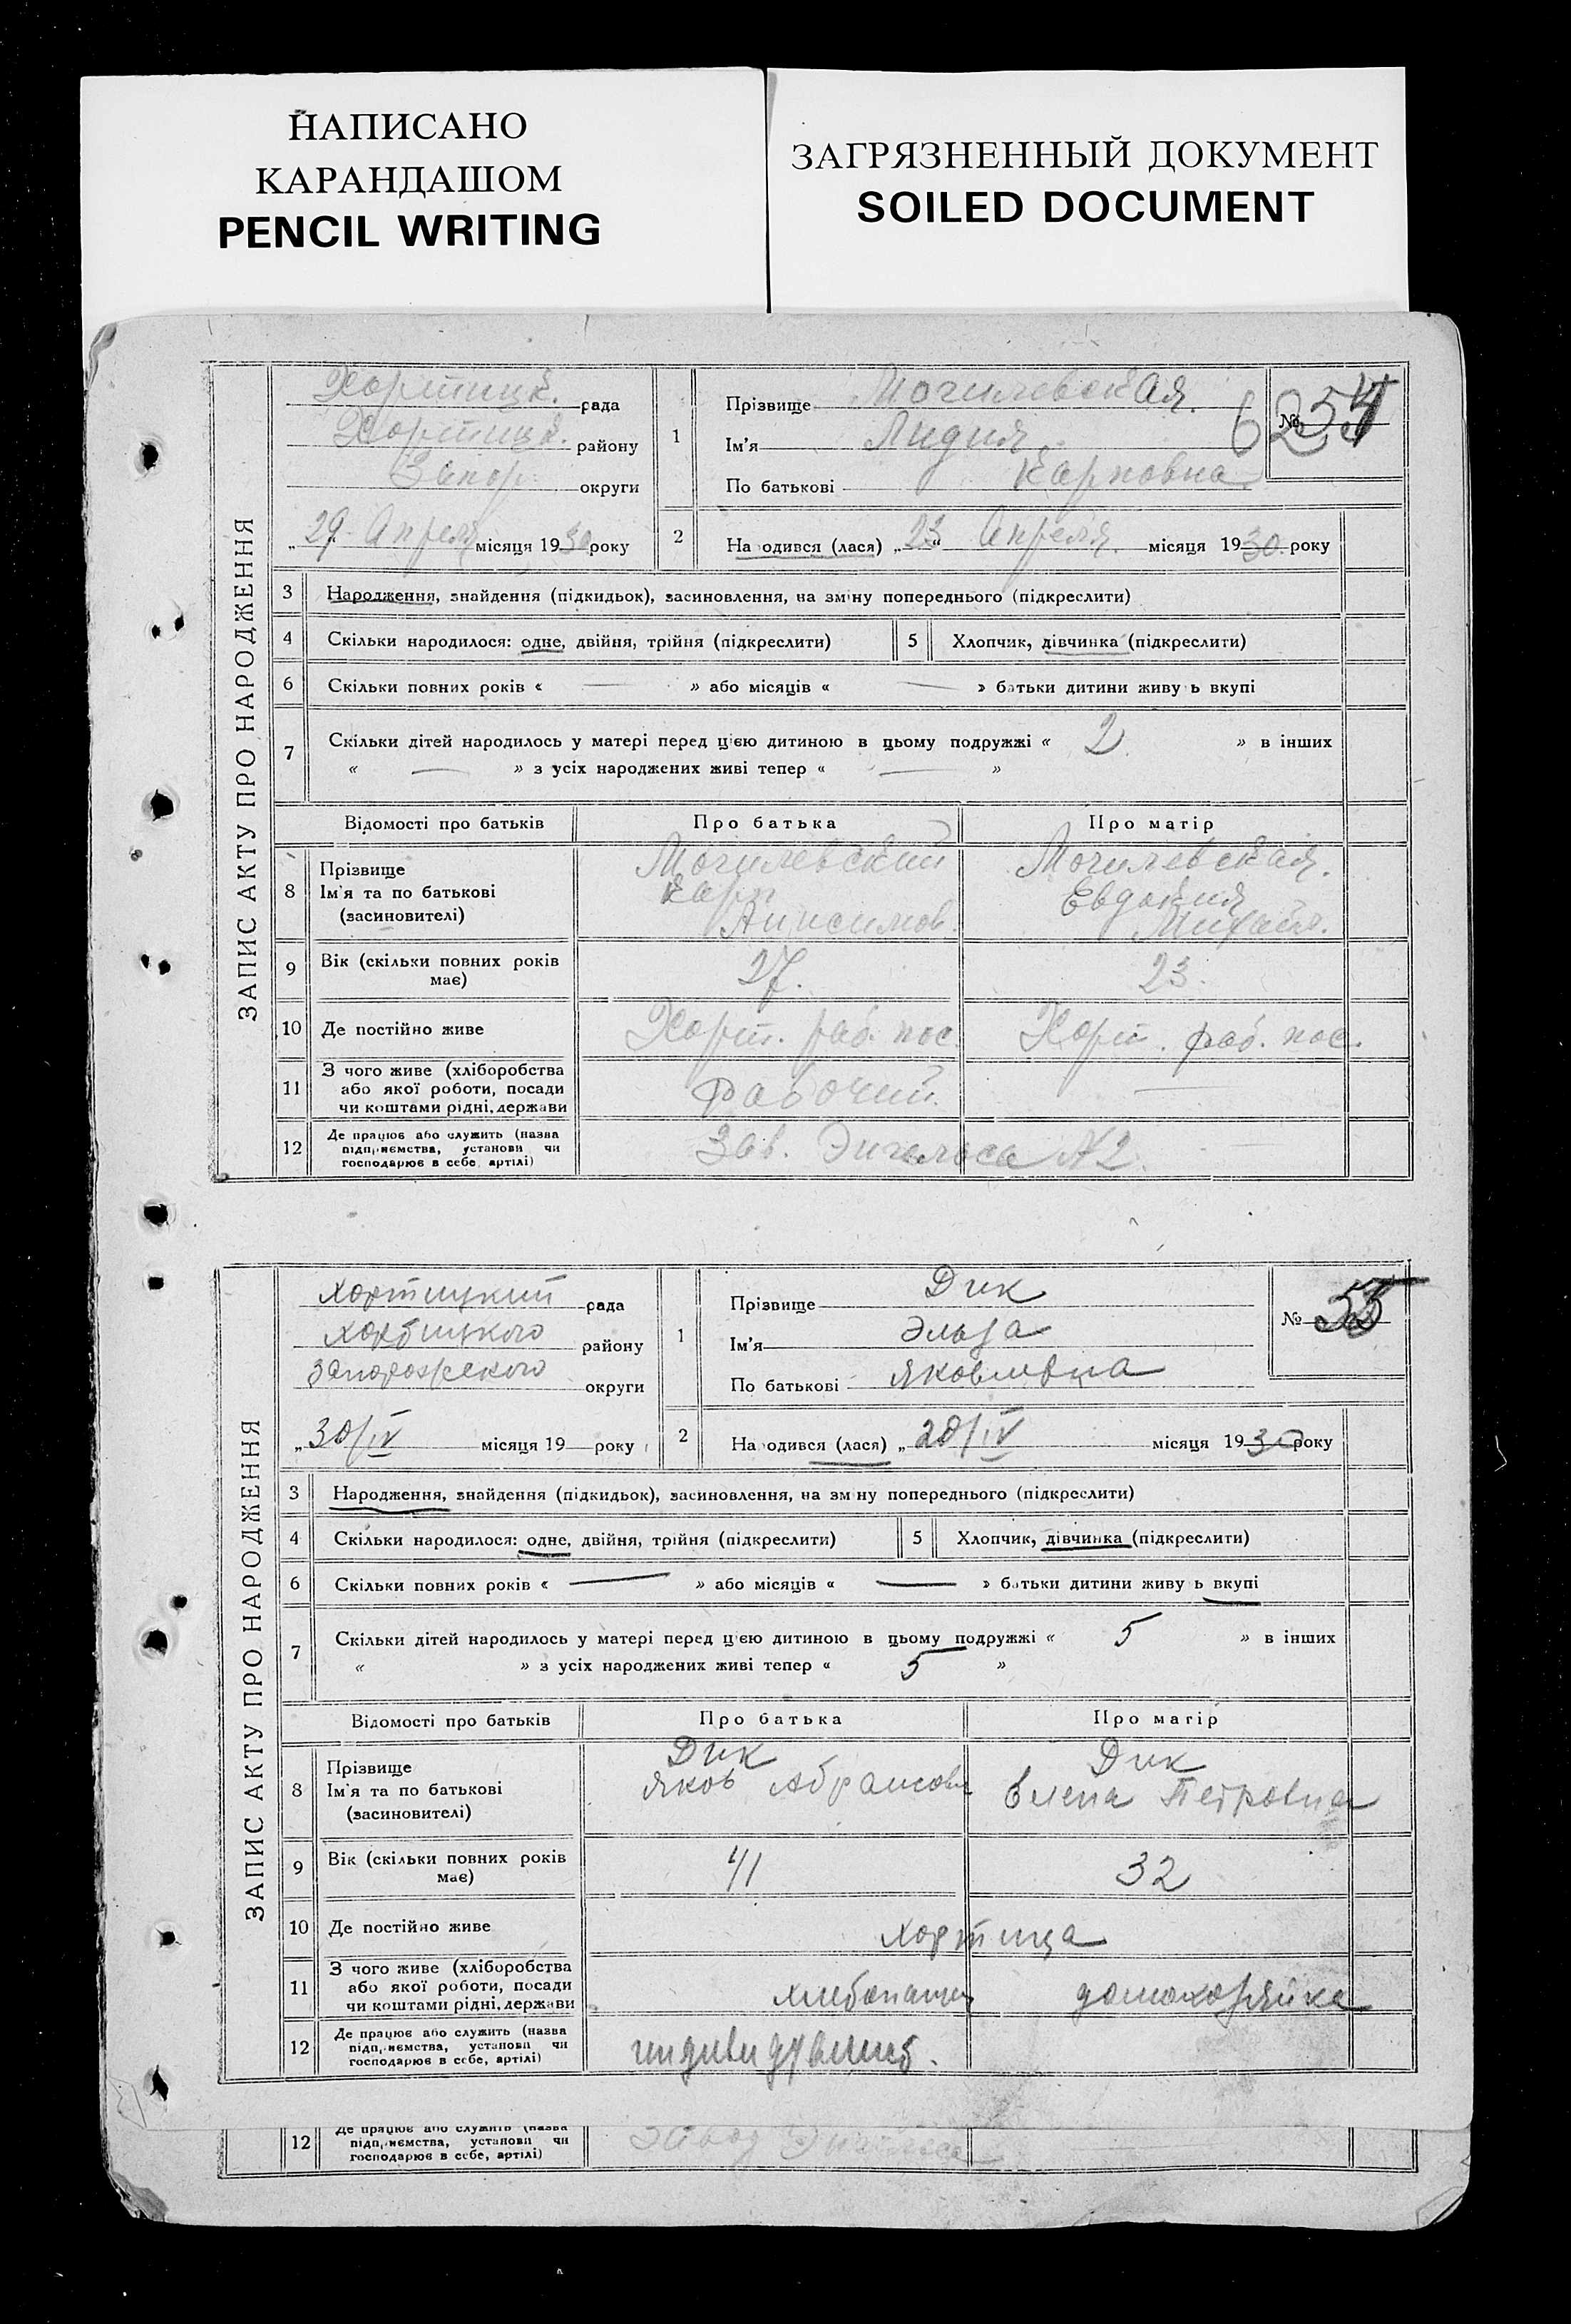 НАПИСАНО
КАРАНДАШОМ
PENCIL WRITING
ЗАГРЯЗНЕННЫЙ ДОКУМЕНТ
SOILED DOCUMENT
ЗАПИС АКТУ ПРО НАРОДЖЕННЯ
Хортицк. рада
Хортицк. району
Запор. округи
„29 Апреля місяця 1930 року
1
Прізвище Могилевская.
Ім'я Лидия
По батькові Карповна
№ 54
2 На одився (лася) „23" Апреля. місяця 1930 року
3 Народження, знайдення (підкидьок), засиновлення, на зміну попереднього (підкреслити)
4 Скільки народилося: одне, двійня, трійня (підкреслити) 5 Хлопчик, дівчинка (підкреслити)
6 Скільки повних років « — » або місяців « — » батьки дитини живу ь вкупі
7 Скільки дітей народилось у матері перед цією дитиною в цьому подружжі « 2 » в інших
« — » з усіх народжених живі тепер « — »
Відомості про батьків Про батька Про матір
8 Прізвище Могилевский Могилевская.
Ім'я та по батькові Карп Евдокия
(засиновителі) Анисимов. Михайл.
9 Вік (скільки повних років має) 27. 23.
10 Де постійно живе Хорт. раб. пос. Хорт. раб. пос.
11 З чого живе (хліборобства або якої роботи, посади чи коштами рідні, держави Рабочий. —
12 Де працює або служить (назва підприємства, установи чи господарює в себе, артілі) Зав. Энгельса №2.
ЗАПИС АКТУ ПРО НАРОДЖЕННЯ
Хортицкий рада
Хортицкого району
Запорожского округи
„30/IV місяця 19 року
1
Прізвище Дик
Ім'я Эльза
По батькові Яковлевна
№ 55
2 На одився (лася) „20/IV місяця 1930 року
3 Народження, знайдення (підкидьок), засиновлення, на зм ну попереднього (підкреслити)
4 Скільки народилося: одне, двійня, трійня (підкреслити) 5 Хлопчик, дівчинка (підкреслити)
6 Скільки повних років « — » або місяців « — » батьки дитини живу ь вкупі
7 Скільки дітей народилось у матері перед цією дитиною в цьому подружжі « 5 » в інших
« » з усіх народжених живі тепер « 5 »
Відомості про батьків Про батька Про матір
8 Прізвище Дик Дик
Ім'я та по батькові Яков Абрамович Елена Петровна
(засиновителі)
9 Вік (скільки повних років має) 41 32
10 Де постійно живе Хортица
11 З чого живе (хліборобства або якої роботи, посади чи коштами рідні, держави хлебопашец домохозяйка
12 Де працює або служить (назва підприємства, установи чи господарює в себе, артілі)
12 Де працює або служить (назва
підприємства, установи чи
господарює в себе, артілі) Завод Энгельса